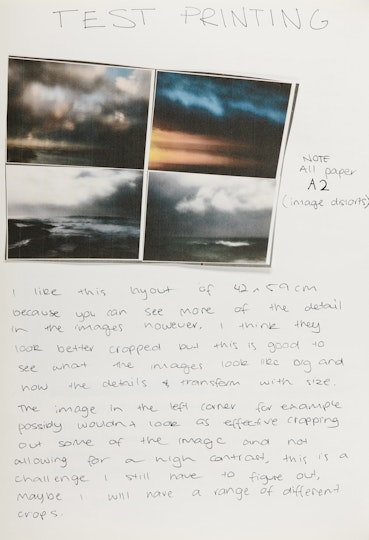 TEST PRINTING
NOTE
All paper
A2
(image distorts)
I like this layout of 42 x 59cm
because you can see more of the detail
in the images however, I think they
look better cropped but this is good to
see what the images look like big and
how the details & transform with size.
The image in the left corner for example
possibly wouldnt look as effective cropping
out some of the image and not
allowing for a high contrast, this is a
challenge I still have to figure out,
maybe I will have a range of different
crops.